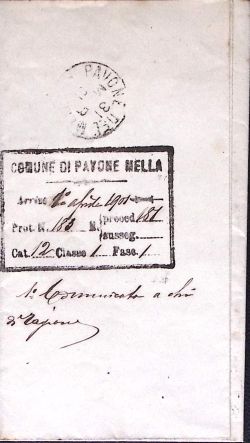 PAVONE DEL M
31
COMUNE DI PAVONE MELLA
Arrivo 1º aprile 1901
Prot. N. 183 N. preced. 181
susseg.
Cat. 12 Classe 1 Fasc. 1
Comunicato a chi
di ragione